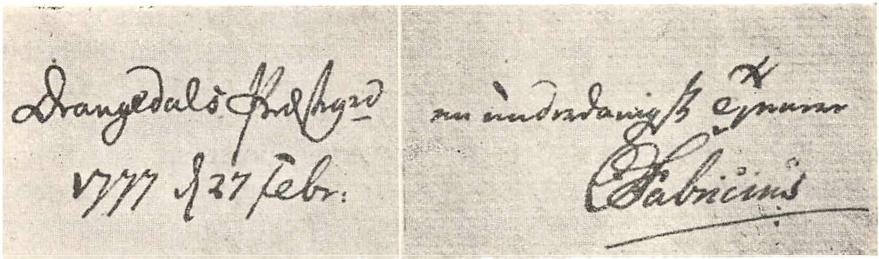 Drangedals Præstegrd
1777 d 27 Febr:
en underdanigst Tjenner
CFabricius